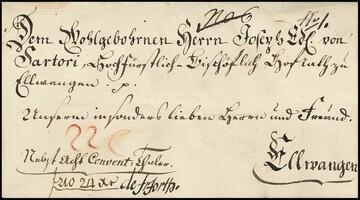 Dem Wohlgebohrnen Herrn Joseph Edl von
Sartori, Hochfürstlich-Bischöflich Hofrath zu
Ellwangen
Unserm insonders lieben Herrn und Freund.
Nebst Acht Convent: Thaler.
Ellwangen